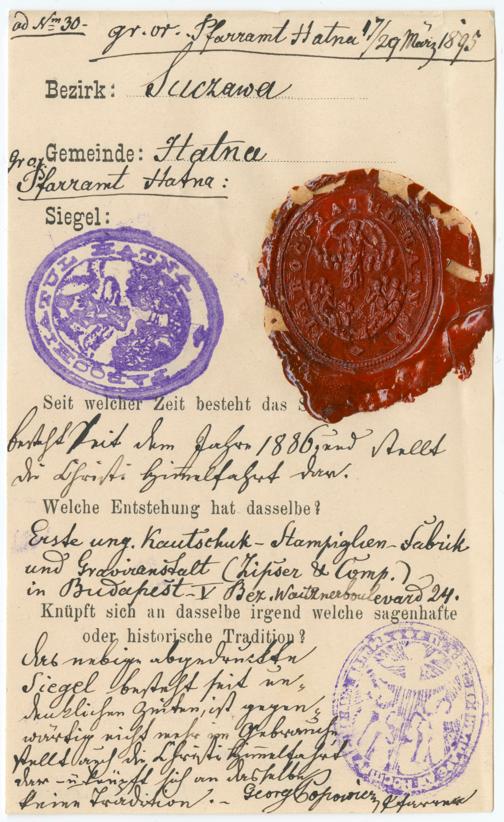 ad Nrn 30-
gr. or. Pfarramt Hatna 17/29 März 1895
Bezirk: Suczawa
Gemeinde: Hatna
gr. or. Pfarramt Hatna:
Siegel:
PAROCHIATUL HATNA
Seit welcher Zeit besteht das S
besteht seit dem Jahre 1886, und stellt
die Christi Himmelfahrt dar.
Welche Entstehung hat dasselbe?
Erste ung. Kautschuk-Stampiglien-Fabrik
und Graviranstalt (Zipser & Comp.)
in Budapest-V Bez. Waitznerboulevard 24.
Knüpft sich an dasselbe irgend welche sagenhafte
oder historische Tradition?
Das nebige abgedruckte
Siegel besteht seit un-
denklichen Zeiten, ist gegen-
wärtig nicht mehr im Gebrauche
stellt auch die Christi Himmelfahrt
dar - u knüpft sich an dasselbe
keine Tradition. -
Georg Popowicz, Pfarrer